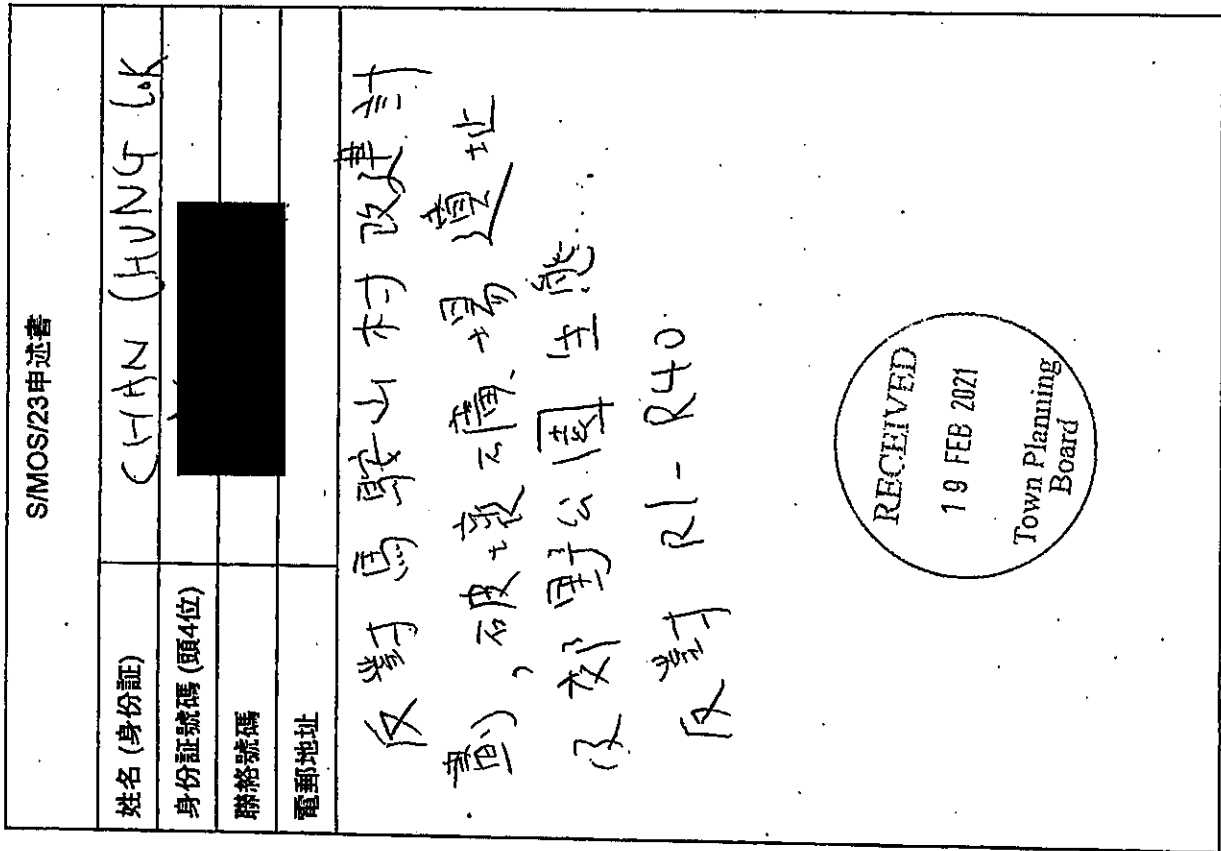 S/MOS/23申述書
姓名 (身份証)
CHAN CHUNG LOK
身份証號碼 (頭4位)
聯絡號碼
電郵地址
反對馬鞍山村改建計
劃，破壞礦場遺址
及郊野公園生態
反對 R1 - R40
RECEIVED
19 FEB 2021
Town Planning
Board